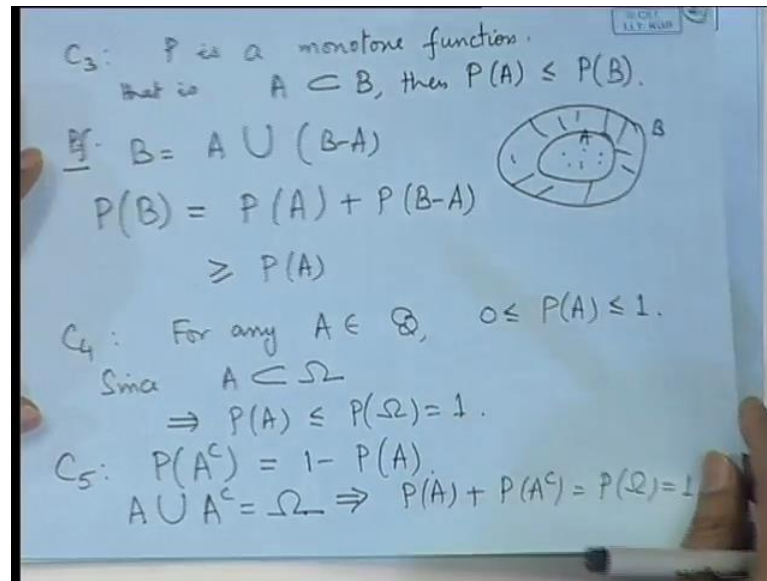 C₃: P is a monotone function.
that is A ⊂ B, then P(A) ≤ P(B).
Pf. B = A ∪ (B-A)
A B
P(B) = P(A) + P(B-A)
≥ P(A)
C₄: For any A ∈ 𝓑, 0 ≤ P(A) ≤ 1.
Since A ⊂ Ω
⇒ P(A) ≤ P(Ω) = 1.
C₅: P(Aᶜ) = 1 - P(A).
A ∪ Aᶜ = Ω ⇒ P(A) + P(Aᶜ) = P(Ω) = 1